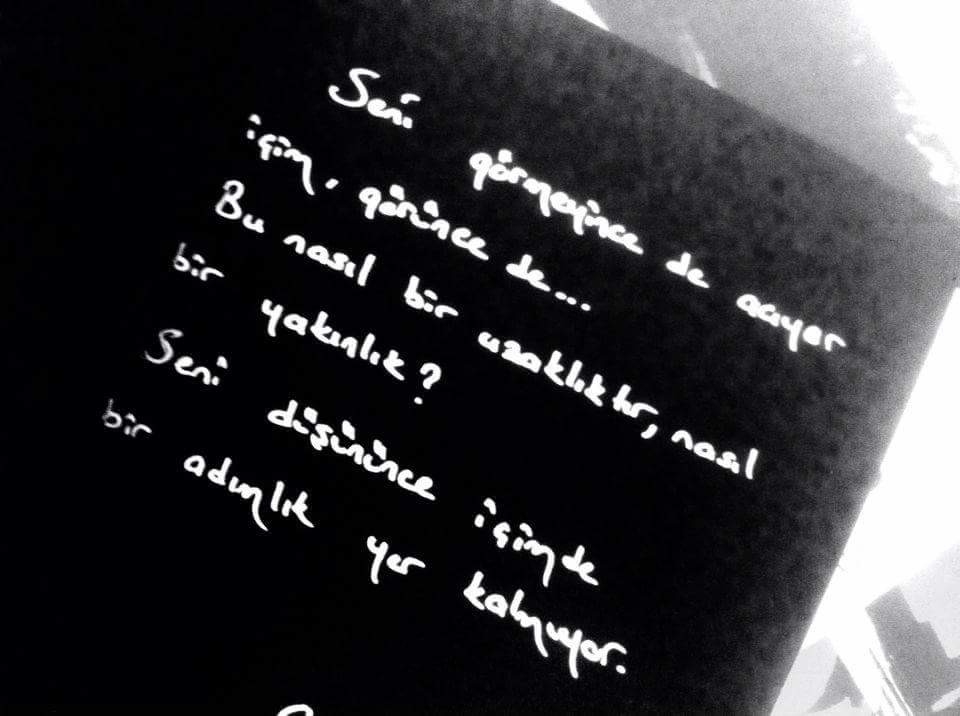 Seni görmeyince de acıyor
içim, görünce de...
Bu nasıl bir uzaklıktır, nasıl
bir yakınlık?
Seni düşününce içimde
bir adımlık yer kalmıyor.